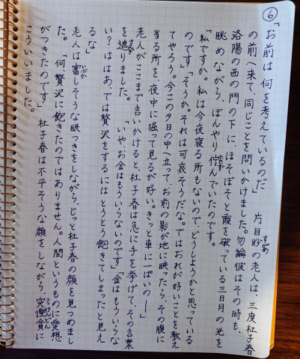 ⑥
「お前は何を考えているのだ」 片目眇の老人は、三度杜子春
の前へ来て、同じことを問いかけました。勿論彼はその時も、
洛陽の西の門の下に、ほそぼそと霞を破っている三日月の光を
眺めながら、ぼんやり佇んでいたのです。
「私ですか。私は今夜寝る所もないので、どうしようかと思っている
のです」「そうか。それは可哀そうだな。ではおれが好いことを教え
てやろう。今この夕日の中へ立って、お前の影が地に映ったら、その腹に
当る所を、夜中に掘って見るが好い。きっと車に一ぱいの―」
老人がここまで言いかけると、杜子春は急に手を挙げて、その言葉
を遮りました。 いや、お金はもういらないのです」「金はもういらな
い?ははあ、では贅沢をするにはとうとう飽きてしまったと見え
るな
老人は審しそうな眼つきをしながら、じっと杜子春の顔を見つめまし
た。「何、贅沢に飽きたのではありません。人間というものに愛想
がつきたのです」杜子春は不平そうな顔をしながら、突慳貪に
こういいました。